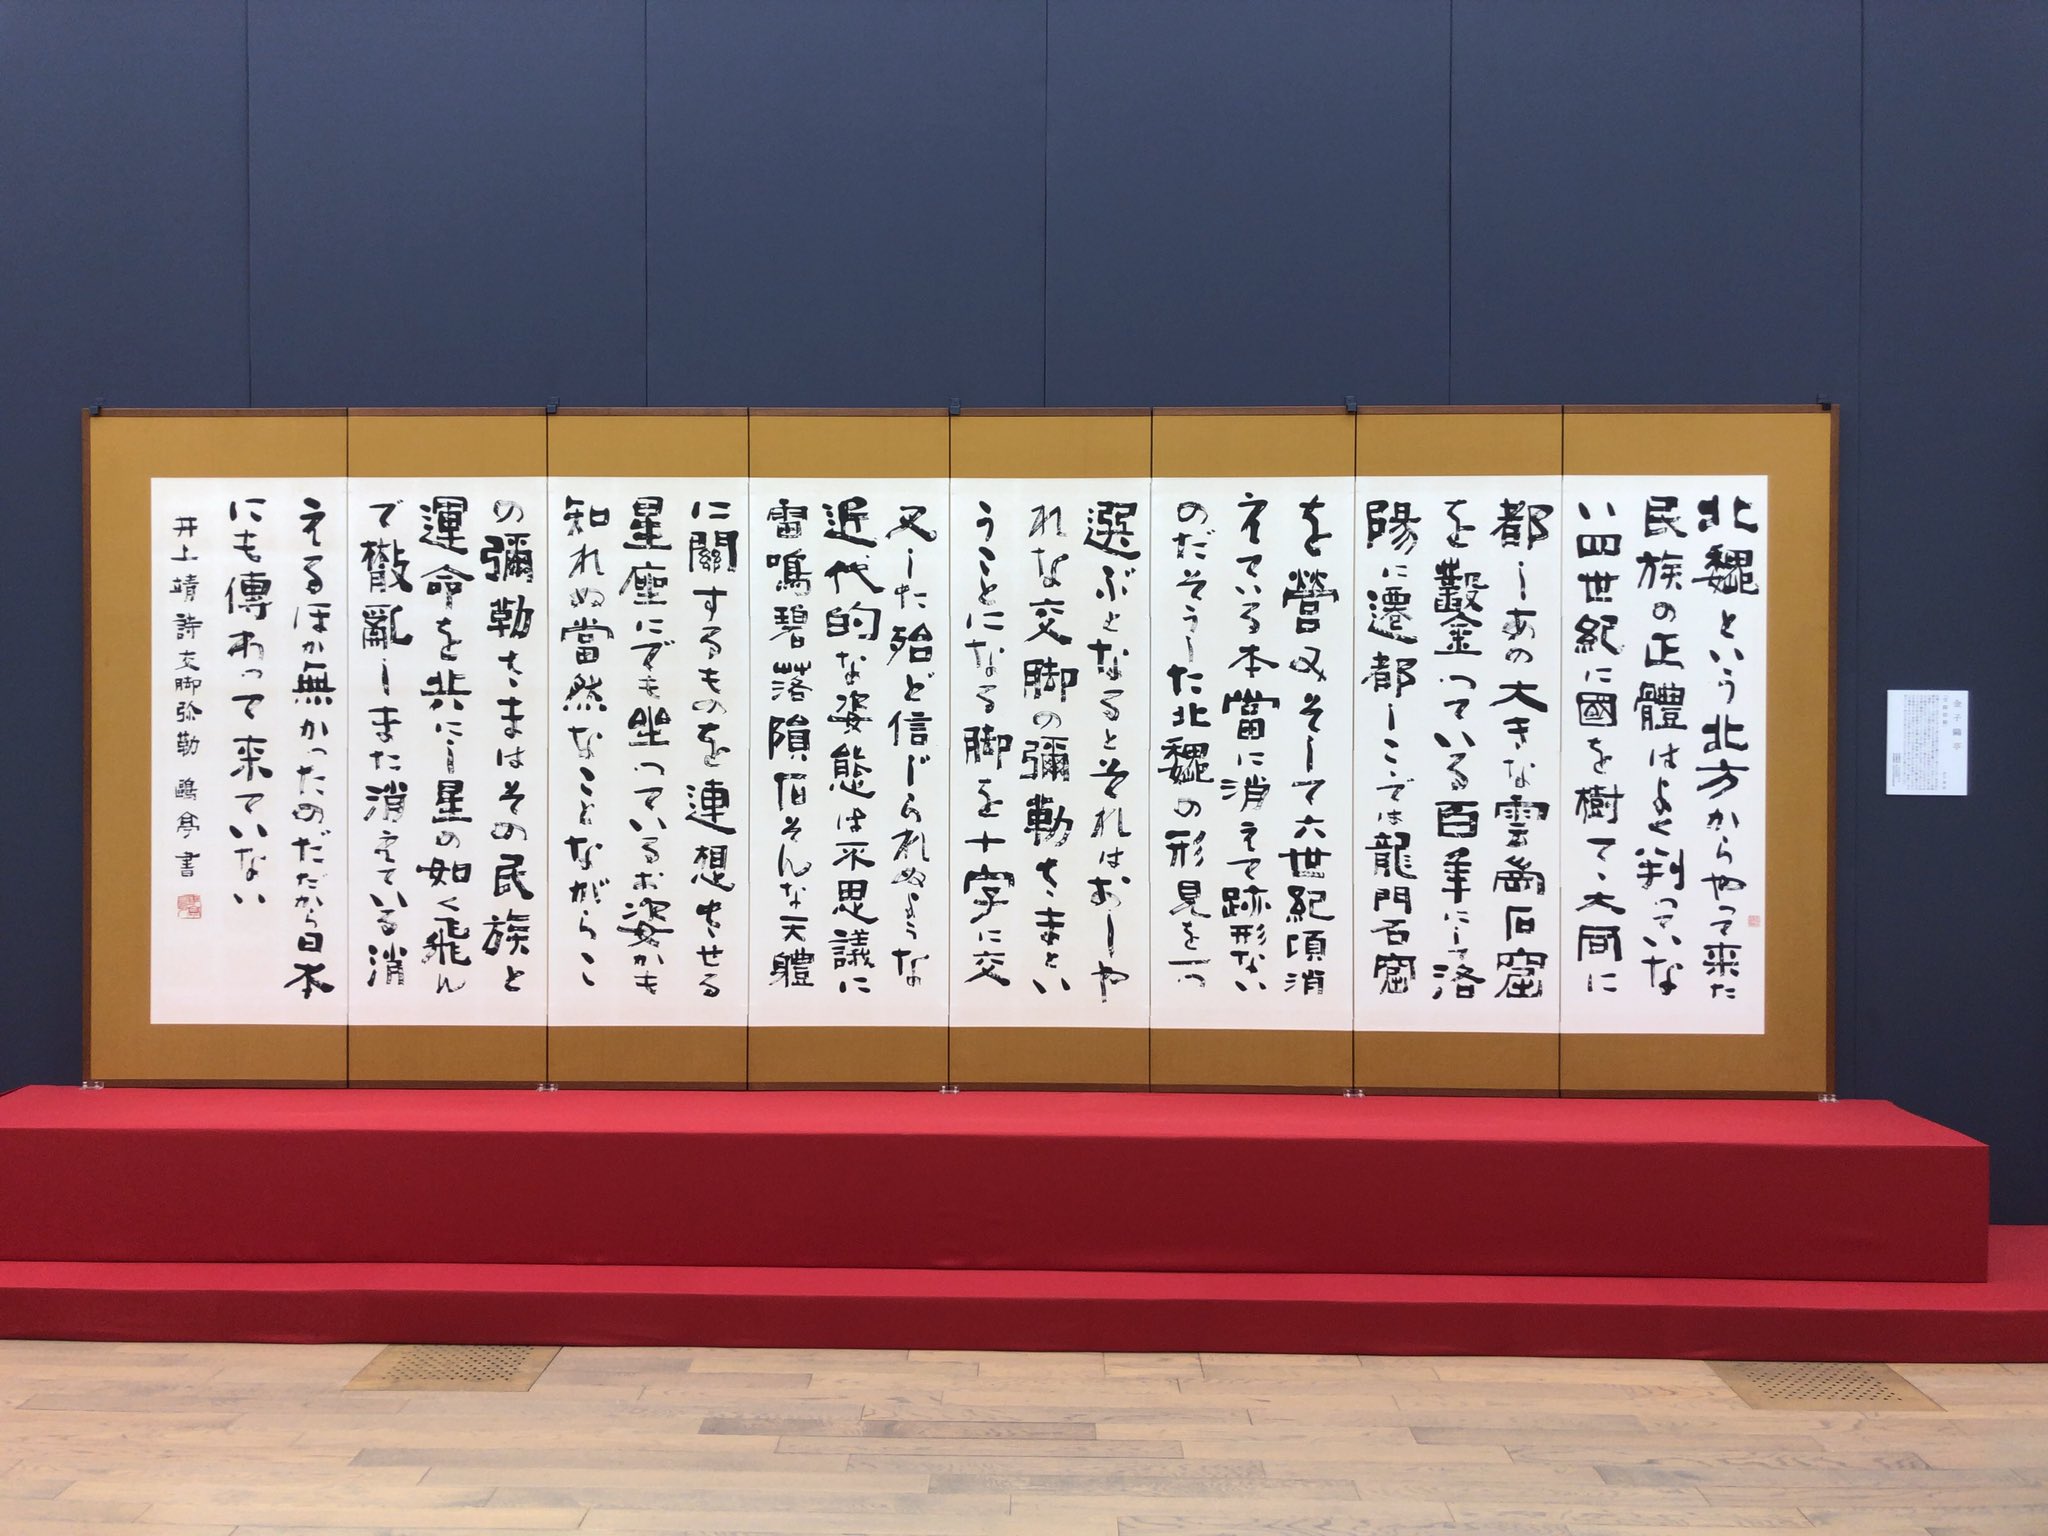 北魏という北方からやって来た
民族の正體はよく判っていな
い四世紀に國を樹て大同に
都しあの大きな雲崗石窟
を鑿っている百年にして洛
陽に遷都しここでは龍門石窟
を營み又そして六世紀頃消
えている本當に消えて跡形ない
のだそうした北魏の形見を一つ
選ぶとなるとそれはおしゃ
れな交脚の彌勒さまとい
うことになる脚を十字に交
叉した殆ど信じられぬような
近代的な姿態は不思議に
雷鳴碧落隕石そんな天體
に關するものを連想させる
星座にでも坐っているお姿かも
知れぬ當然なことながらこ
の彌勒さまはその民族と
運命を共にし星の如く飛ん
で散亂しまた消えている消
えるほか無かったのだだから日本
にも傳わって来ていない
井上靖詩交脚弥勒 鷗亭書
金子鷗亭